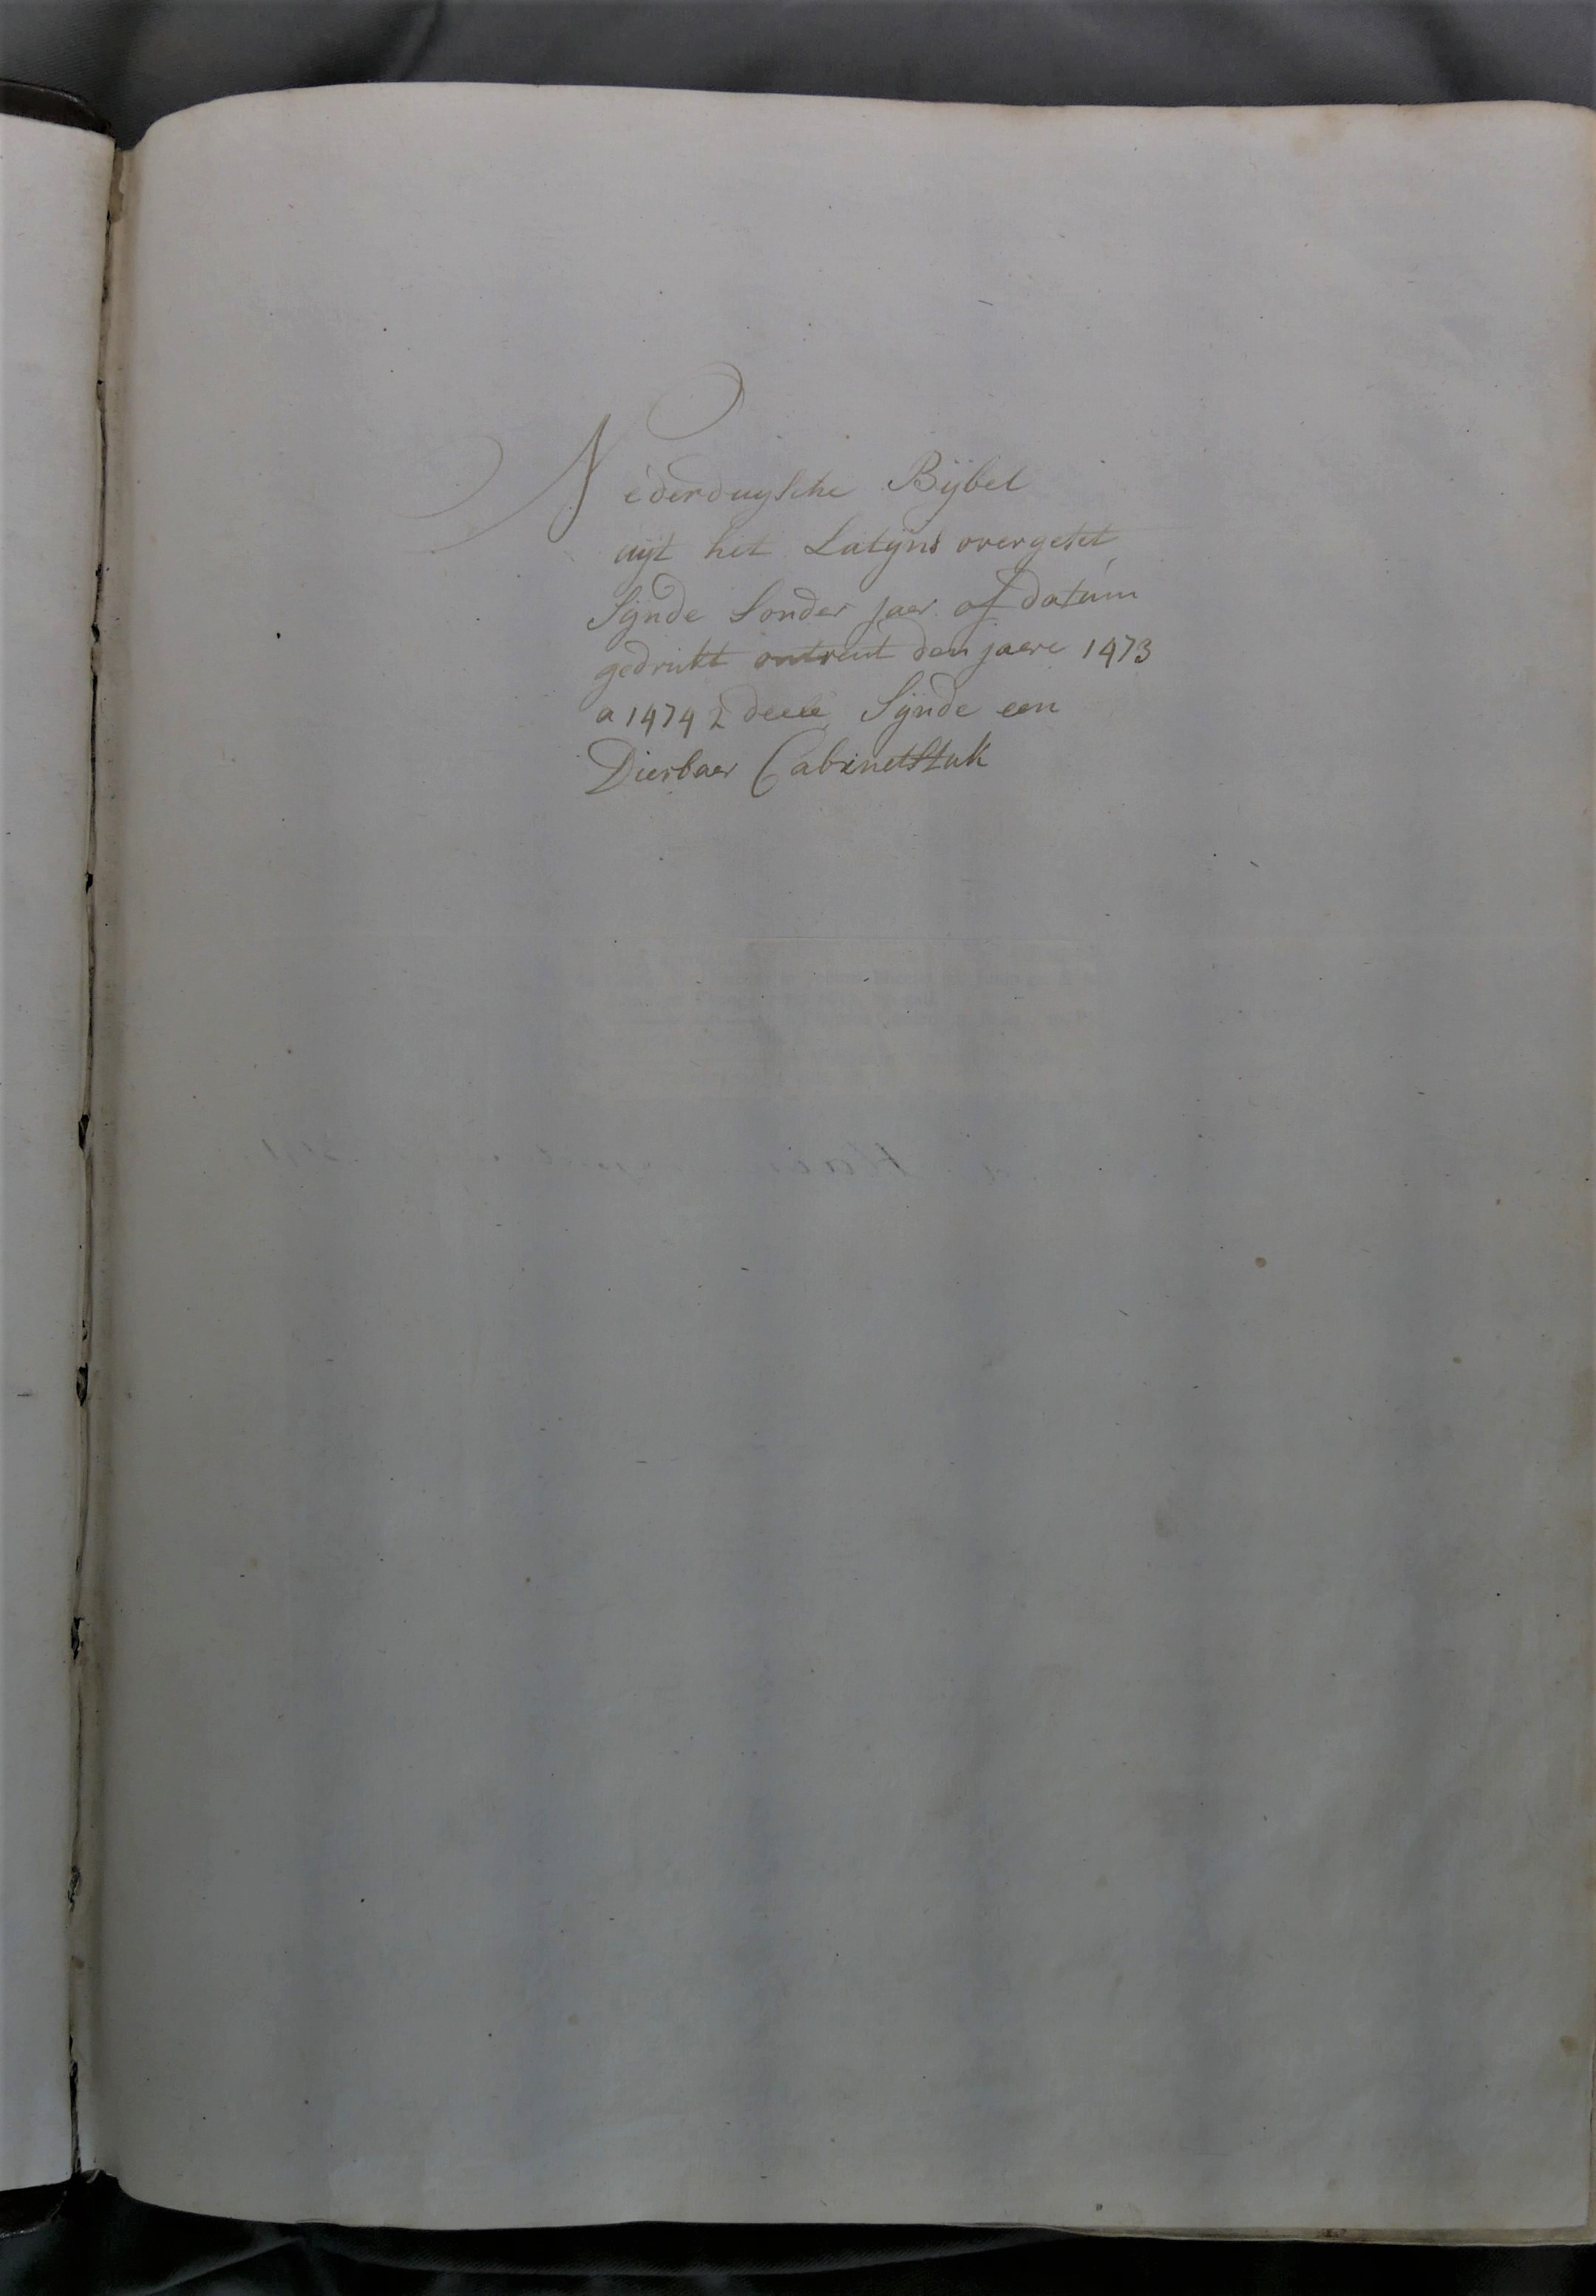 Néderduysche Bÿbel
uÿt het Latÿns overgeset
Sÿnde Sonder jaer of datúm
gedrukt ontrent den jaere 1473
a 1474 2 deele Sÿnde een
Dierbaer Cabinetstuk